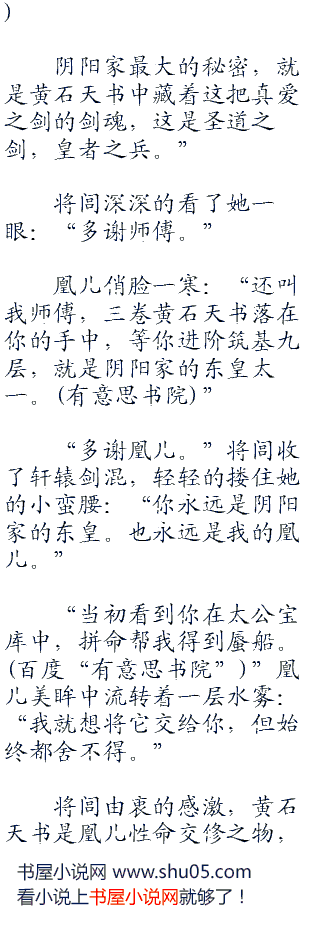 )
阴阳家最大的秘密，就
是黄石天书中藏着这把真爱
之剑的剑魂，这是圣道之
剑，皇者之兵。”
将闾深深的看了她一
眼：“多谢师傅。”
凰儿俏脸一寒：“还叫
我师傅，三卷黄石天书落在
你的手中，等你进阶筑基九
层，就是阴阳家的东皇太
一。(有意思书院)”
“多谢凰儿。”将闾收
了轩辕剑混，轻轻的搂住她
的小蛮腰：“你永远是阴阳
家的东皇。也永远是我的凰
儿。”
“当初看到你在太公宝
库中，拼命帮我得到蜃船。
(百度“有意思书院”)”凰
儿美眸中流转着一层水雾：
“我就想将它交给你，但始
终都舍不得。”
将闾由衷的感激，黄石
天书是凰儿性命交修之物，
书屋小说网 www.shu05.com
看小说上书屋小说网就够了！